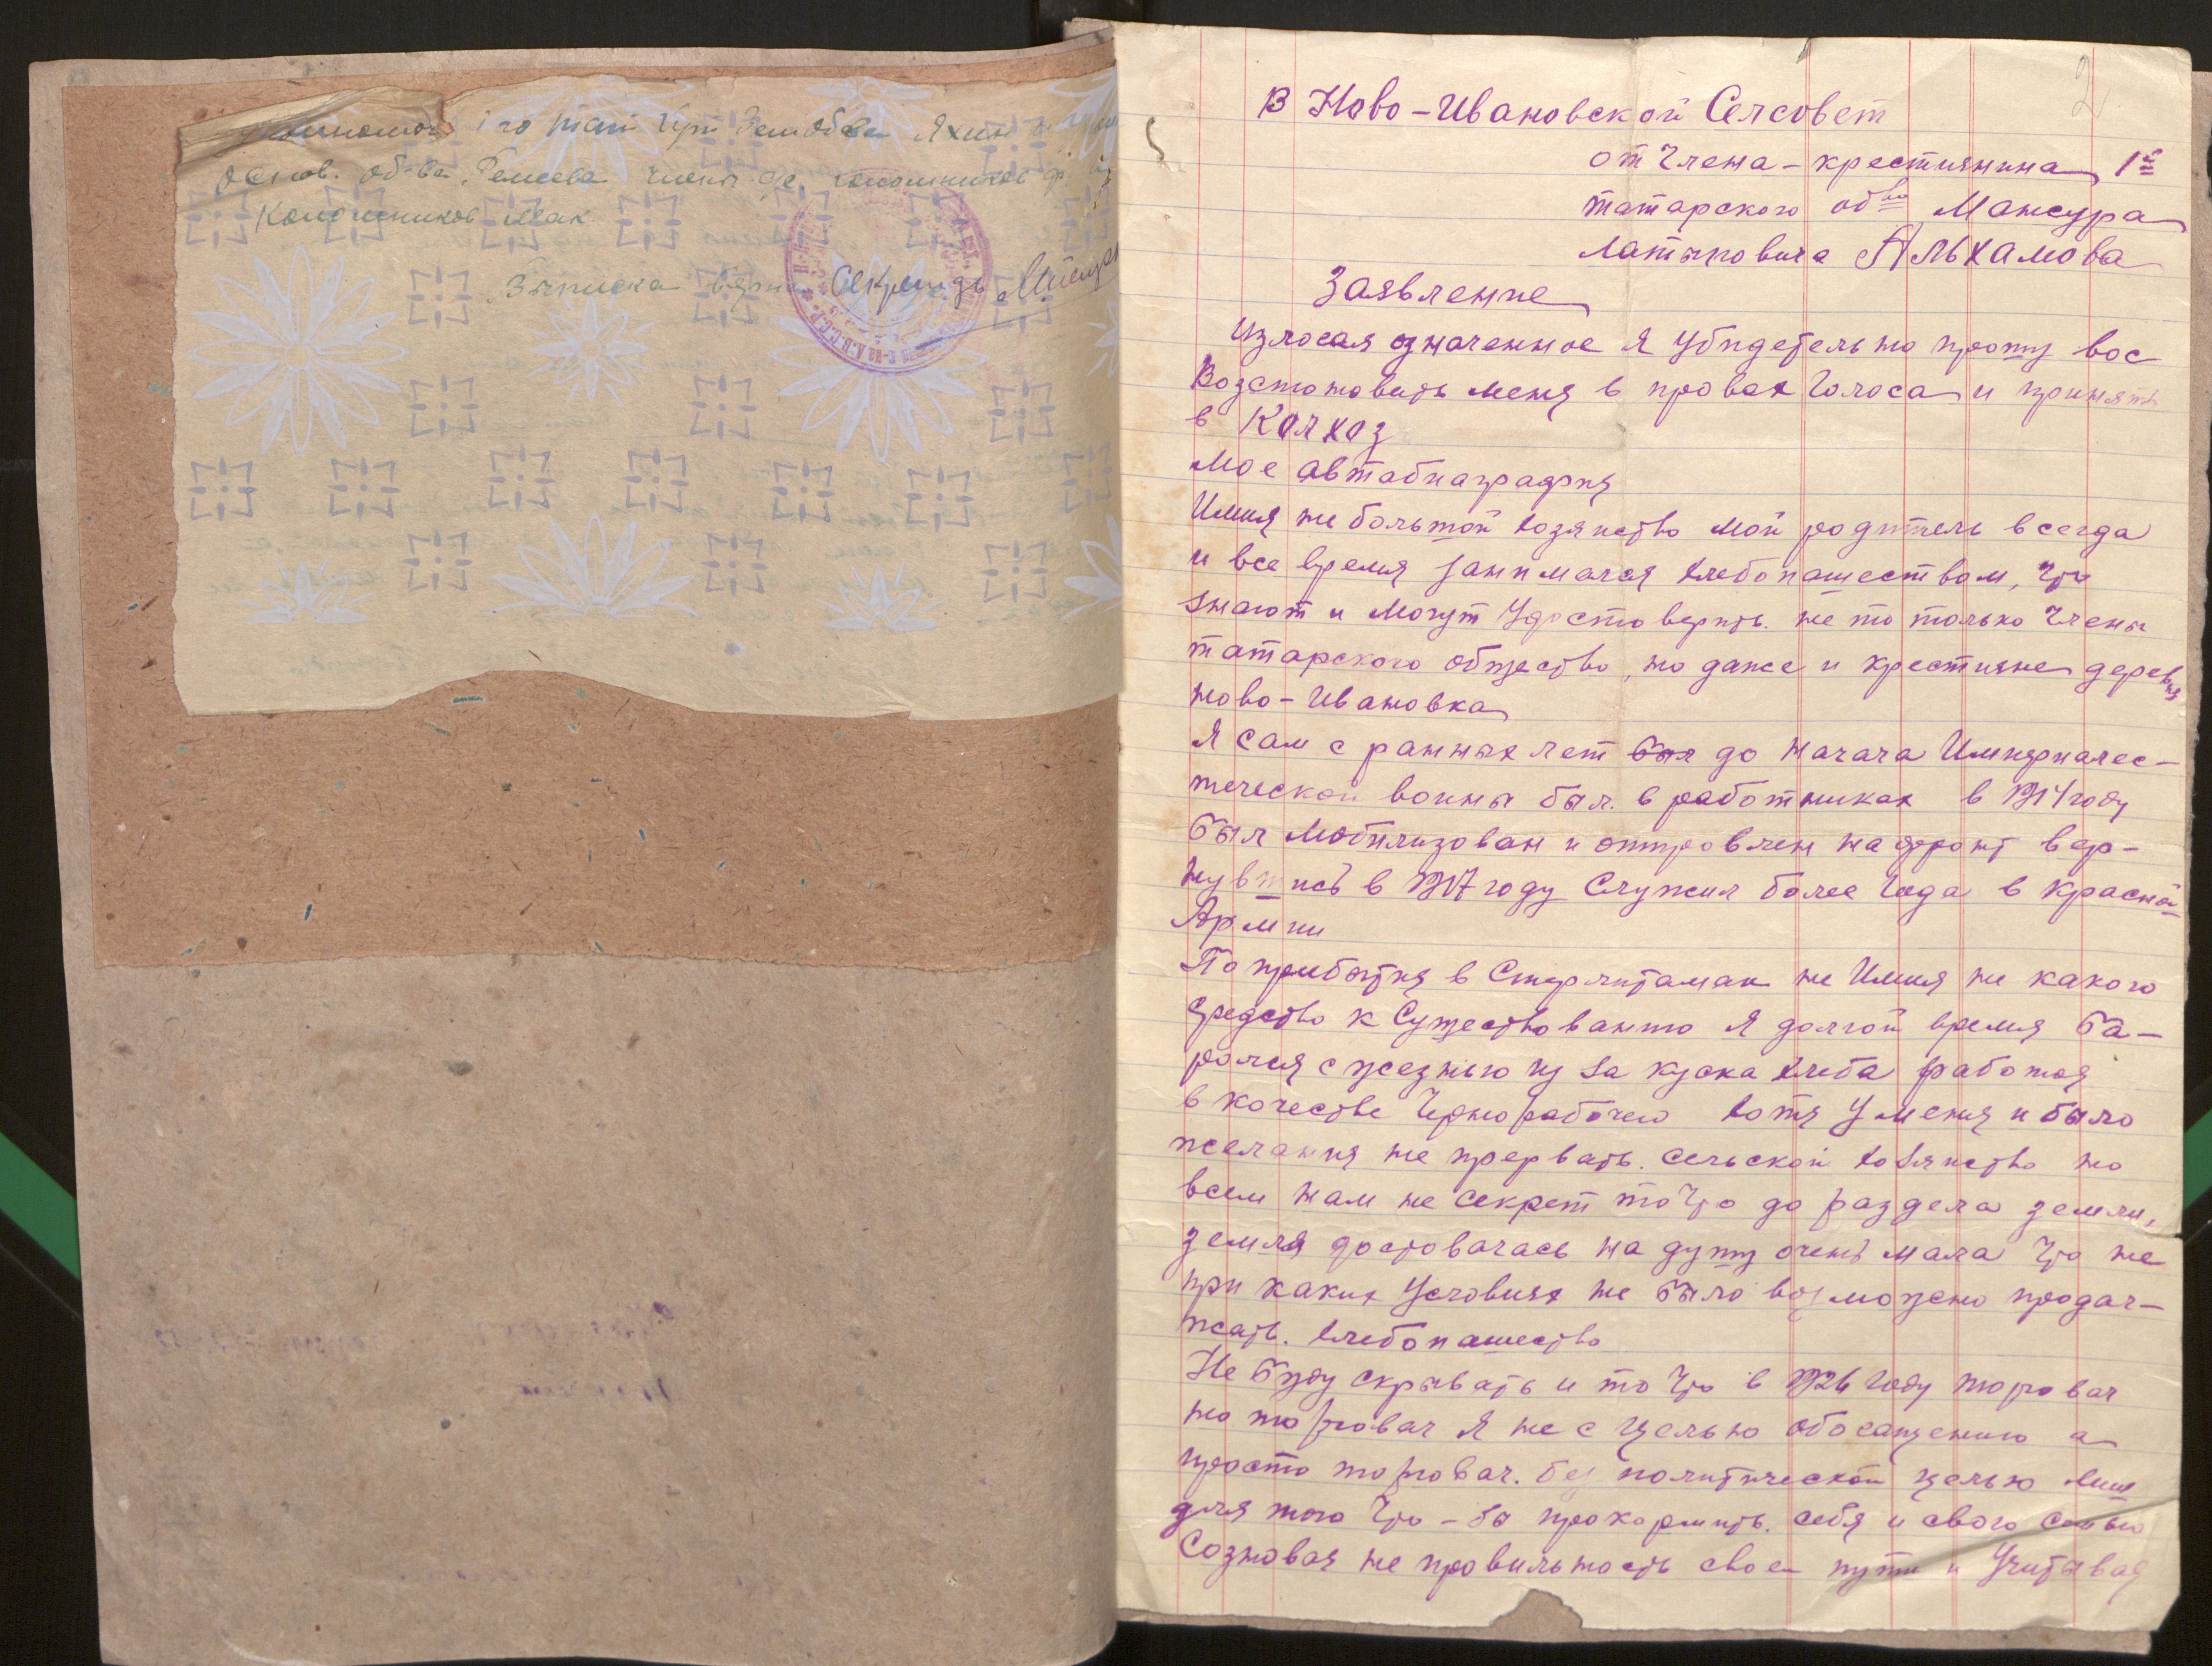 Основ. об-ва
Выписка верна Секретарь
2
В Ново-Ивановской Селсовет
от Члена-крестиянина 1го
татарского обва Мансура
Латыповича Альхамова
Заявление
Излогая означенное я убидетельно прошу вос
Возстоновить меня в провах Голоса и принять
в Колхоз
Мое автабиаграфия
Имия не большой хозяиство мой родитель всегда
и все время занималея хлебопашеством, что
знают и могут Удостоверить. не то только Члены
татарского общество, но даже и крестияне деревня
ново-Ивановка
Я сам с ранных лет был до начача Импяриалес-
тической воины был. в работниках в 1914 году
был Мобилизован и отправлен на фронт вер-
нувшись в 1917 году Служил более Года в Красной
Армии
По прибытия в Стерлитамак не Имия не какого
Средство к Существованию Я долгой время ба-
ролся с жезнью из за куска хлеба работая
в качестве Чернорабочего хотя У меня и было
желания не прервать. сельской хозяиство но
всем нам не секрет то что до раздела земли,
земля достовалась на душу очень мала что не
при каких Условиях не было возможено продал-
жать. хлебопашество
Не буду скрывать и то что в 1926 году торговал
но торговал Я не с целью обогащению а
просто торговал. без политической целью лиш
для того что-бы прокормить. себя и свого Семью
Сознавая не провильность своей пути и Учитывая